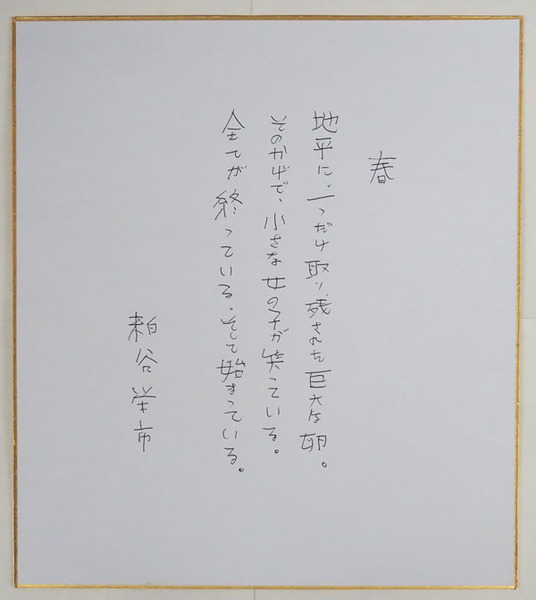 春
地平に、一つだけ取り残された巨大な卵。
そのかげで、小さな女の子が笑っている。
全てが終っている。そして始まっている。
粕谷栄市